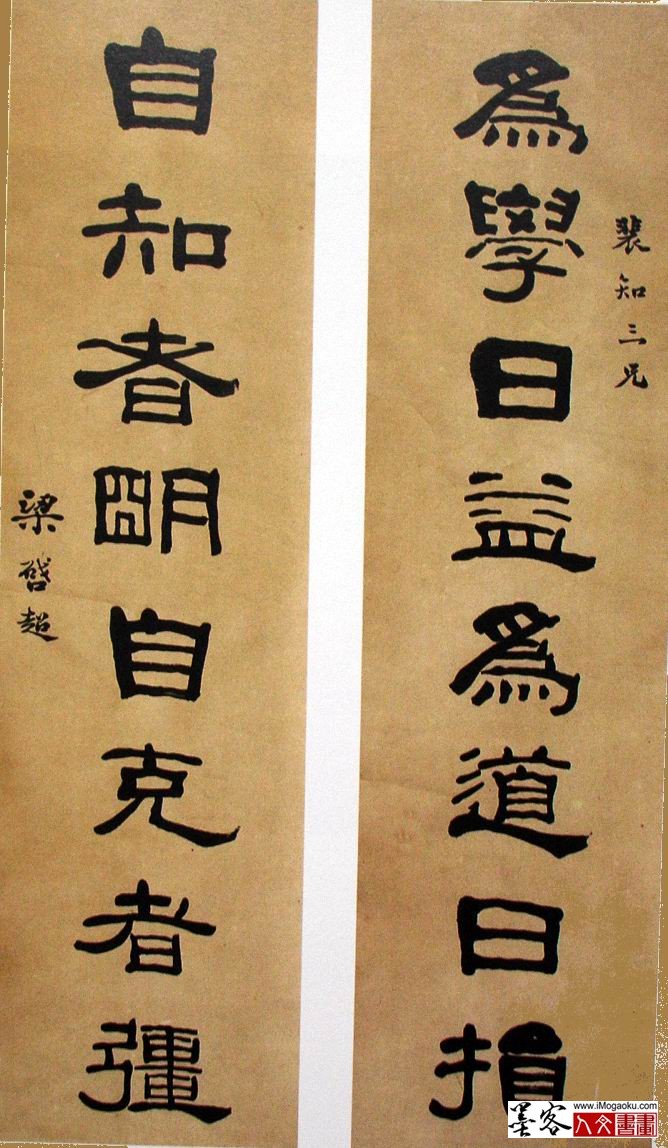 裴知三兄
爲學日益爲道日損
自知者朙自克者彊
梁啓超
www.iMogaoku.com
墨客
人文書畫